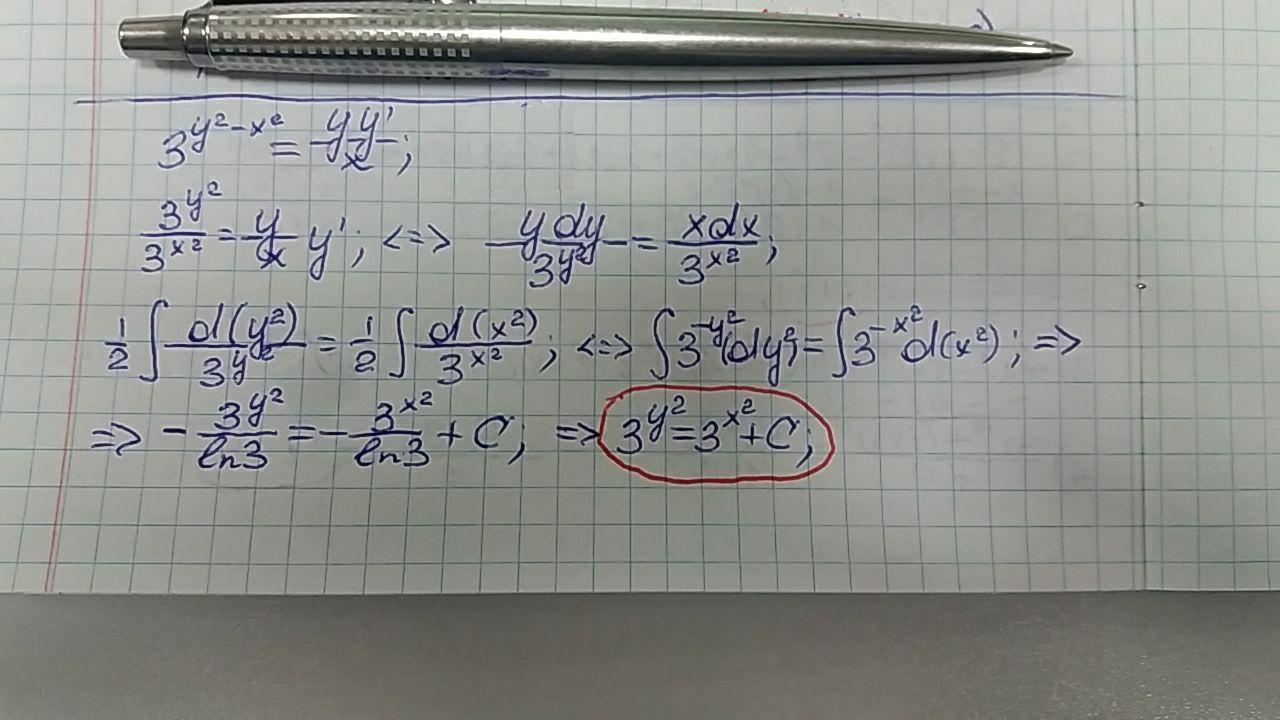 3^{y²-x²} = \frac{yy'}{x};
\frac{3^{y²}}{3^{x²}} = \frac{y}{x} y'; <=> \frac{y dy}{3^{y²}} = \frac{x dx}{3^{x²}};
\frac{1}{2} ∫ \frac{d(y²)}{3^{y²}} = \frac{1}{2} ∫ \frac{d(x²)}{3^{x²}}; <=> ∫ 3^{-y²} (dy²) = ∫ 3^{-x²} d(x²); =>
=> -\frac{3^{y²}}{ln3} = -\frac{3^{x²}}{ln3} + C; => 3^{y²} = 3^{x²} + C;